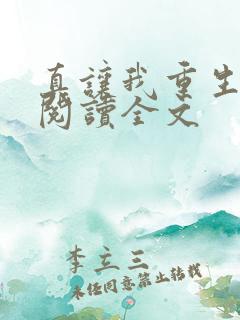 真讓我重生
閱讀全文
李立三
未经同意禁止转载